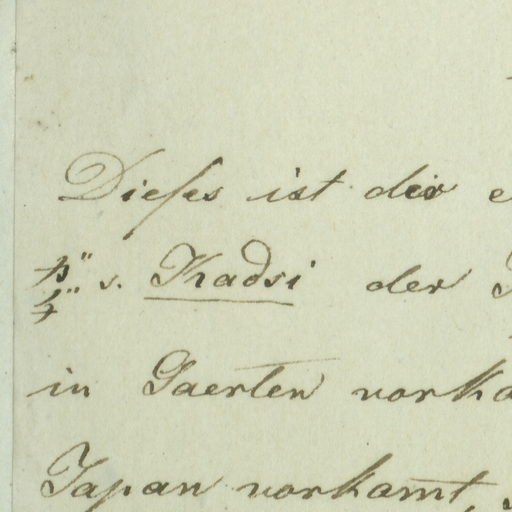 Dieses ist die
s. Kadsi der
in Gaerten vorko
Japan vorkomt,